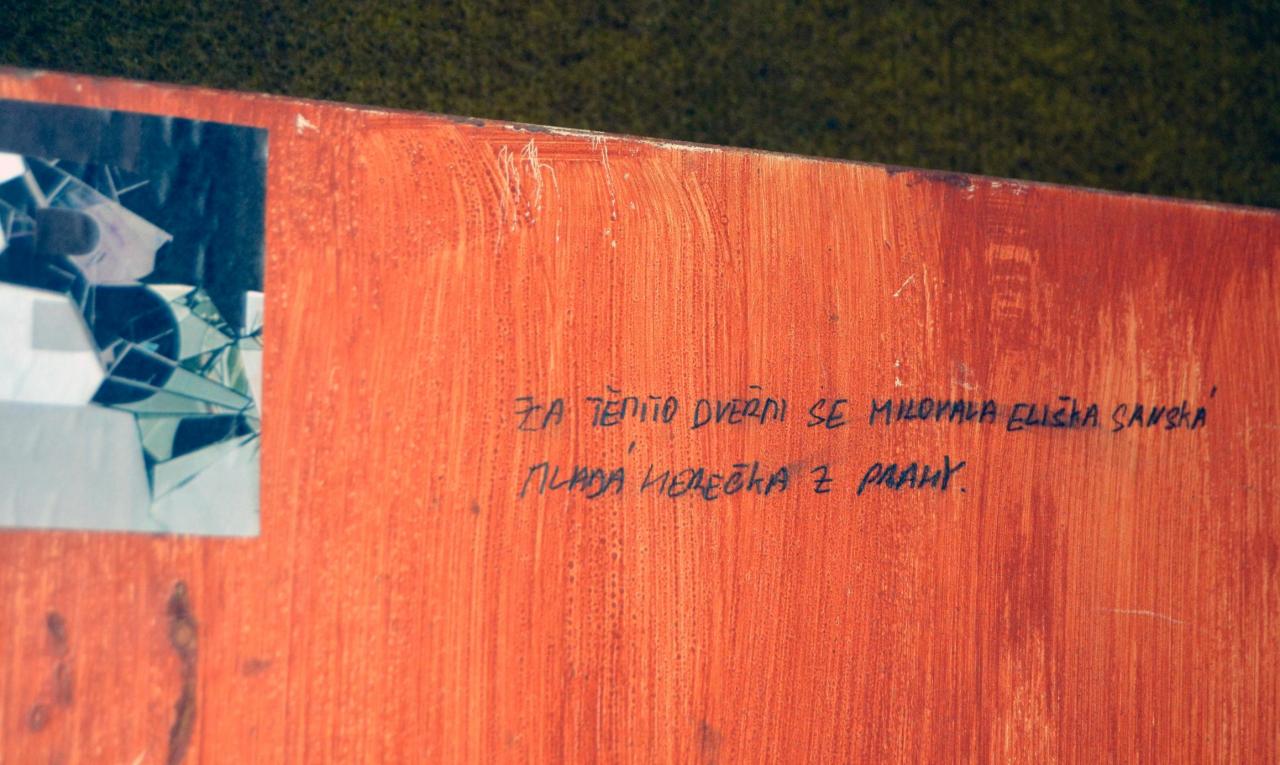 ZA TĚMITO DVEŘMI SE MILOVALA ELIŠKA SANSKÁ
MLADÁ HEREČKA Z PRAHY.